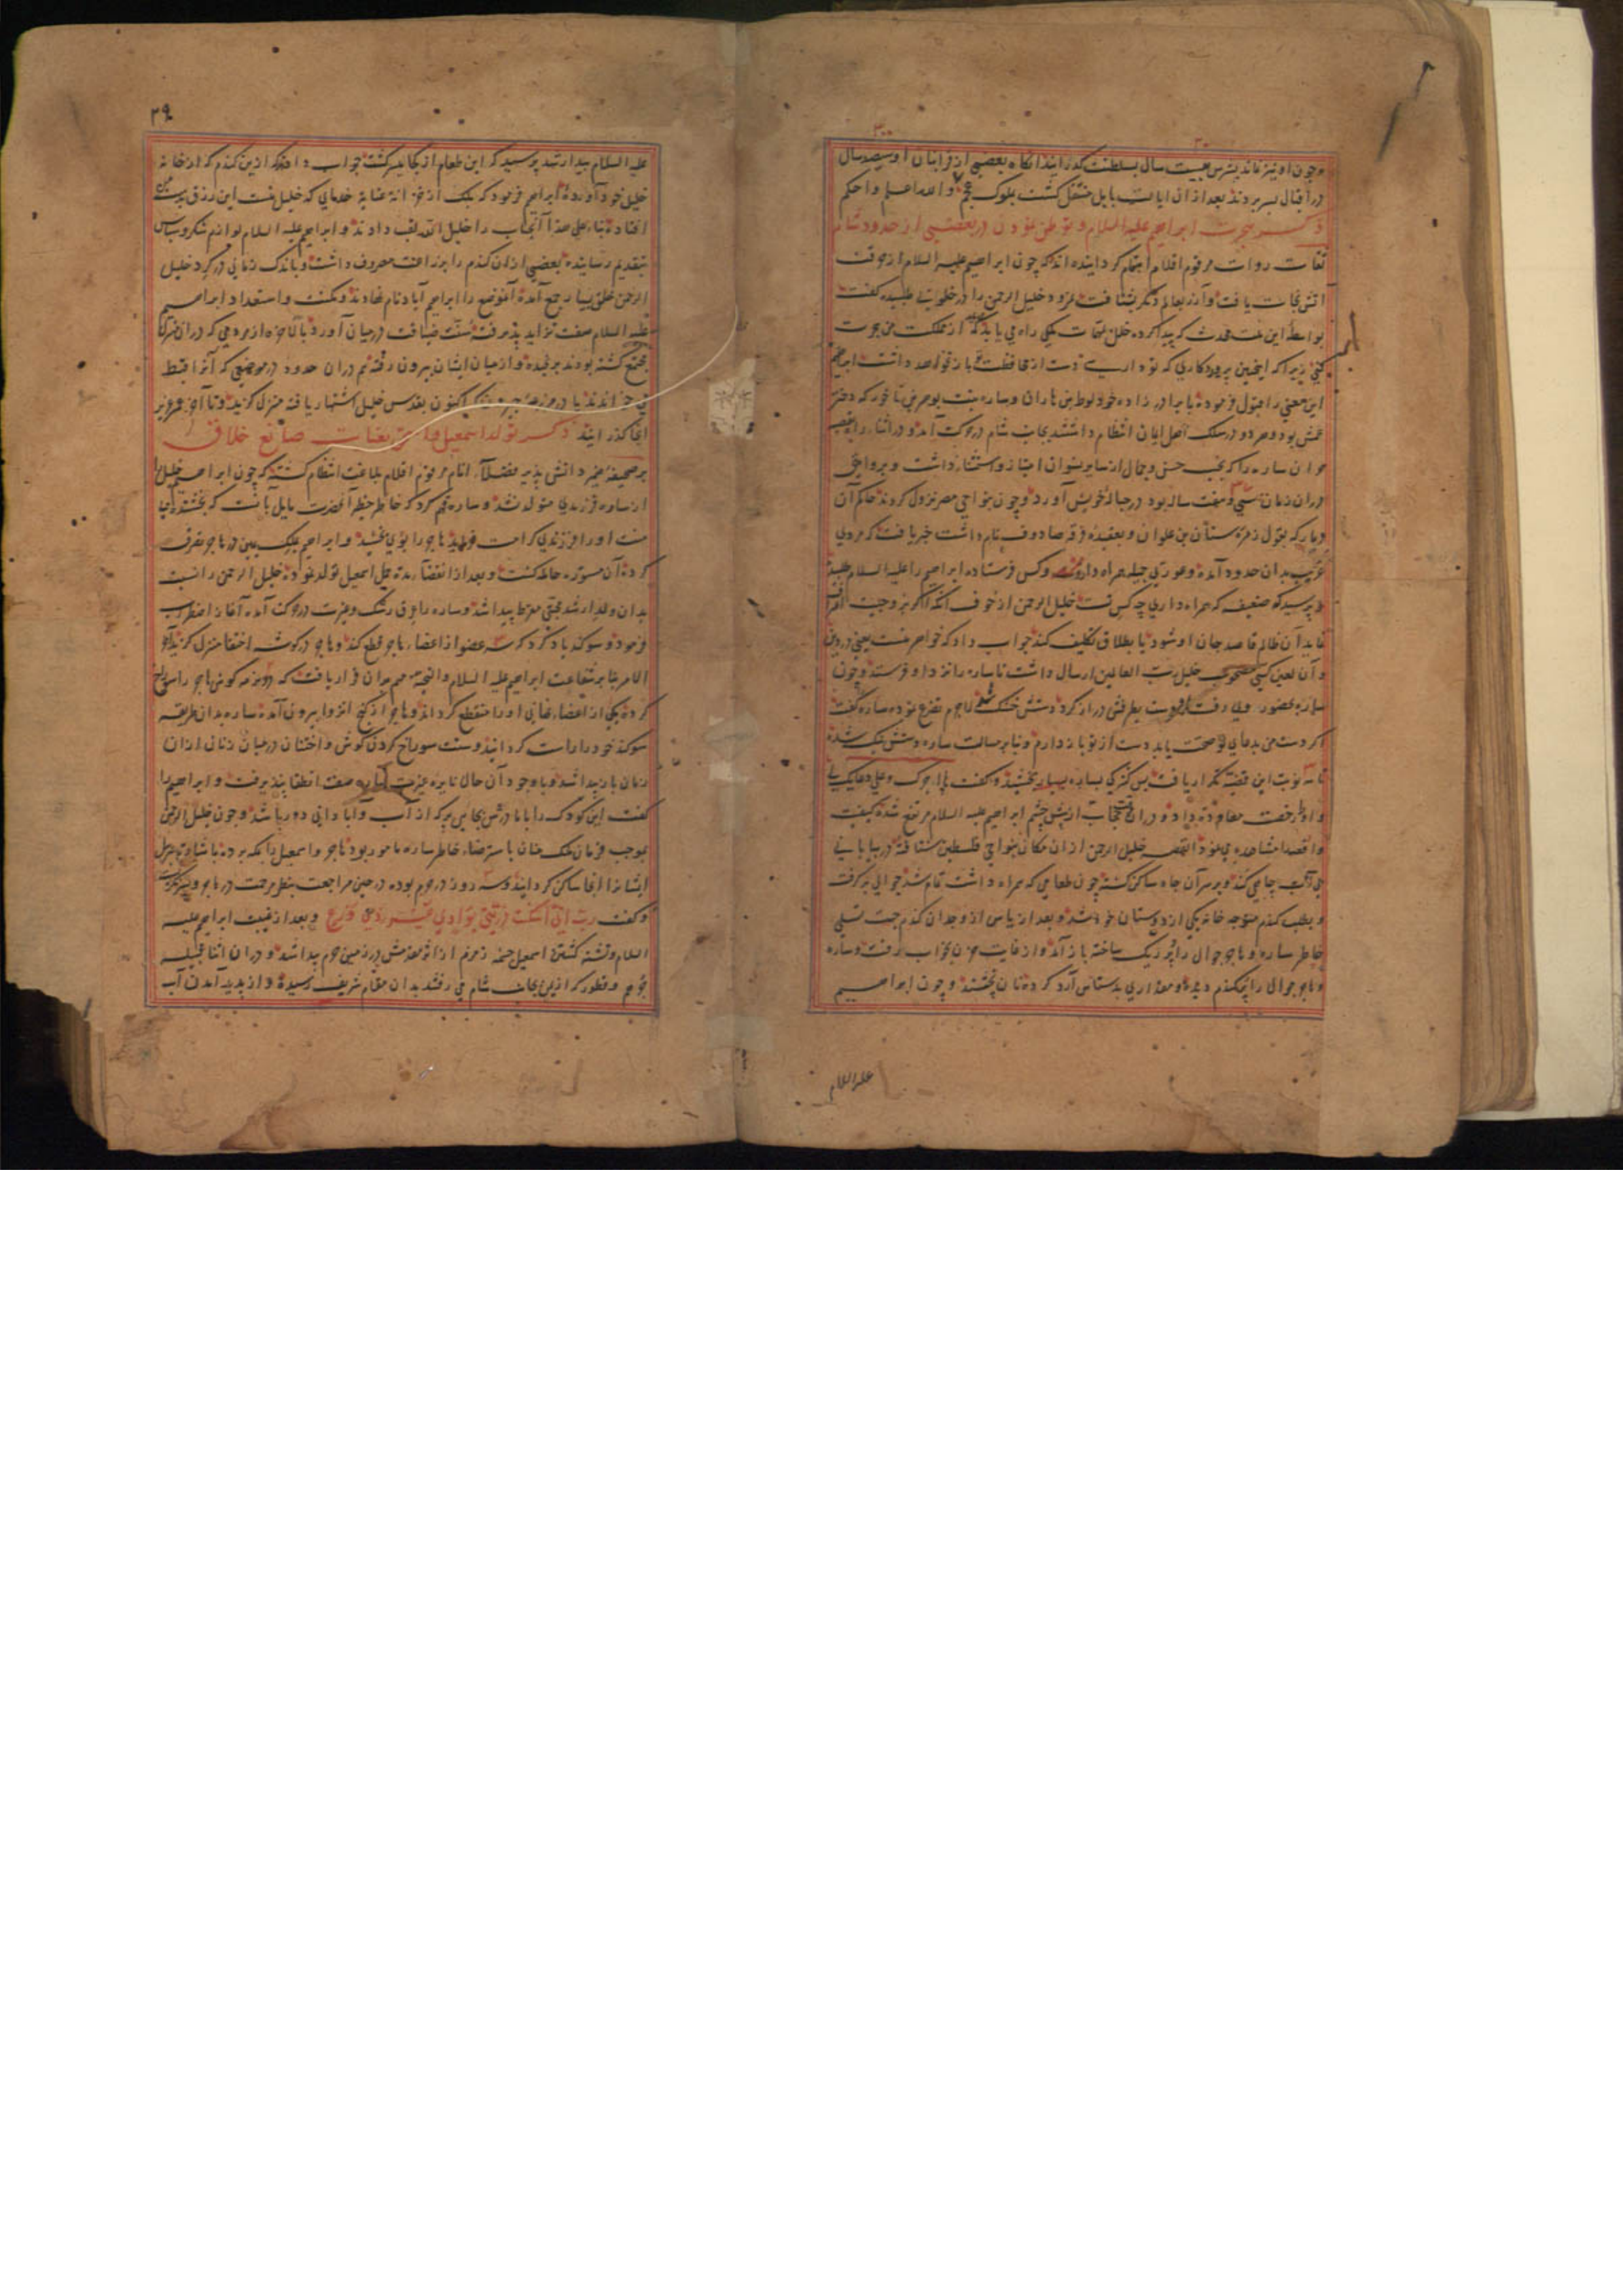 وچون او نیز نماند پسرش بیست سال بسلطنت گذرانید آنگاه بعضی از قرابتان او سیصد سال
در اقبال بسر بردند بعد از آن ایالت بابل منتقل گشت بملوک عجم والله اعلم واحکم
ذکر هجرت ابراهیم علیه السلام و توطن نمودن در بعضی از حدود شام
ثقات روات مرقوم اقلام اهتمام گردانیده‌اند که چون ابراهیم علیه السلام از
آتش نجات یافت و آزر بعالم دیگر شتافت نمرود خلیل الرحمن را در خلوتی طلبیده گفت
بواسطه این ملت محدث که پیدا کرده خلل بمهمات ملکی راه می یابد باید که از مملکت من هجرت
کنی زیرا که اینچنین پروردگاری که تو داری دست از محافظت تو باز نخواهد داشت ابراهیم
این معنی را قبول فرموده با برادرزاده خود لوط بن هاران و ساره بنت که دختر
عمش بود و هر دو در سلک اهل ایمان انتظام داشتند بجانب شام در حرکت آمد و در اثناء راه
حران ساره را که بحسن و جمال از سایر نسوان امتیاز و استثنا داشت و بروایتی
در آن زمان سی و هفت ساله بود در حباله خویش آورد و چون بنواحی مصر نزول کردند حاکم آن
دیار که بقول زمره سنان بن علوان و بعقیده فرقه صادوف نام داشت خبر یافت که مردی
غریب بدان حدود آمده و عورتی جمیله همراه دارد و کس فرستاده ابراهیم را علیه السلام طلبید
و پرسید که ضعیفه که همراه داری چه کس تست خلیل الرحمن از خوف آنکه اگر بزوجیت
نماید آن ظالم قاصد جان او شود یا بطلاق تکلیف کند جواب داد که خواهر منست یعنی در دین
و آن لعین کسی مصحوب خلیل رب العالمین ارسال داشت تا ساره را نزد او فرستد و چون
ساره بحضور وی رفت دست بطرفش دراز کرد دستش خشک شد لاجرم تضرع نموده ساره گفت
اگر دست من بدعای تو صحت یابد دست از تو باز دارم و بنابر مسالت ساره دستش نیک شده
تا سه نوبت این قضیه تکرار یافت پس کنیزکی بساره بخشید و گفت ها اجرک
و او را رخصت معاودت داد و در آن وقت حجاب از پیش چشم ابراهیم علیه السلام مرتفع شده کیفیت
واقعه را مشاهده می نمود القصه خلیل الرحمن از آن مکان بنواحی فلسطین شتافته در بیابانی
بی آب چاهی کند و بر سر آن چاه ساکن گشته چون طعامی که همراه داشت تمام شد جوالی برگرفت
و بطلب گندم متوجه خانه یکی از دوستان خود شد و بعد از یاس از وجدان گندم جهت تسلی
خاطر ساره و هاجر جوال را پر ریگ ساخته باز آمد و از غایت حزن بخواب رفت و ساره
و هاجر جوال را پر گندم دیده و مقداری بدستاس آرد کرده نان پختند و چون ابراهیم
علیه السلام
۲۹
علیه السلام بیدار شد پرسید که این طعام از کجا میسر گشت جواب دادند که ازین گندم که از خانه
خلیل خود آورده ابراهیم فرمود که بلک از خزانه عنایة خدائی که خلیل منست این رزق بدست
افتاده بناء علی هذا آنجناب را خلیل الله لقب دادند و ابراهیم علیه السلام لوازم شکر و سپاس
بتقدیم رسانیده بعضی از آن گندم را بزراعت مصروف داشت و باندک زمانی در گرد خلیل
الرحمن خلق بسیار جمع آمده آنموضع را ابراهیم آباد نام نهادند و مکنت و استعداد ابراهیم
علیه السلام صفت تزاید پذیرفته سنت ضیافت در میان آورد بالاخره از مردمی که در آن منزل
مجتمع گشته بودند برنجیده و از میان ایشان بیرون رفته هم در آن حدود در موضعی که آنرا قط
می خواندند یا در مزرعه که اکنون بقدس خلیل اشتهار یافته منزل گزید و تا آخر عمر عزیز
آنجا گذرانید ذکر تولد اسمعیل صانع خلاق
بر صحیفه ضمیر دانش پذیر فضلاء انام مرقوم اقلام بلاغت انتظام گشته که چون ابراهیم خلیل را
از ساره فرزندی متولد نشد و ساره فهم کرد که خاطر خطیر آنحضرت مایل بآنست که بخشنده بی
منت او را فرزندی کرامت فرماید هاجر را بوی بخشید و ابراهیم بملک یمین در هاجر تصرف
کرده آن مستوره حامله گشت و بعد از انقضاء مدة حمل اسمعیل تولد نموده خلیل الرحمن را نسبت
بدان ولد ارشد محبتی مفرط پیدا شد و ساره را عرق رشک و غیرت در حرکت آمده آغاز اضطراب
فرمود و سوگند یاد کرد که سه عضو از اعضاء هاجر قطع کند و هاجر در گوشه اختفا منزل گزیده آخر
الامر بنابر شفاعت ابراهیم علیه السلام والتحیه مهم بران قرار یافت که هر دو نرمه گوش هاجر را سوراخ
کرده یکی از اعضاء نهانی او را منقطع گرداند و هاجر از کنج انزوا بیرون آمده ساره بدان طریقه
سوگند خود را راست گردانید و سنت سوراخ کردن گوش و اختتان در میان زنان از آن
زمان باز پیدا شد و با وجود آن حال نایره غیرت ساره صفت انطفا نپذیرفت و ابراهیم را
گفت این کودک را با مادرش بجایی بر که از آب و آبادانی دور باشد و چون خلیل الرحمن
بموجب فرمان ملک منان باسترضاء خاطر ساره مامور بود هاجر و اسمعیل را بمکه برده باشارت جبرئیل
ایشانرا آنجا ساکن گردانید و سه روز در حرم بوده در حین مراجعت بنظر مرحمت در هاجر و پسر نگریست
و گفت رب انی اسکنت ذریتی بواد غیر ذی زرع و بعد از غیبت ابراهیم علیه
السلام و تشنه گشتن اسمعیل چشمه زمزم از اثر مقدمش در زمین حرم پیدا شد و در آن اثنا قبیله
جرهم و قطورکه از یمن بجانب شام می رفتند بدان مقام شریف رسیده و از پدید آمدن آب